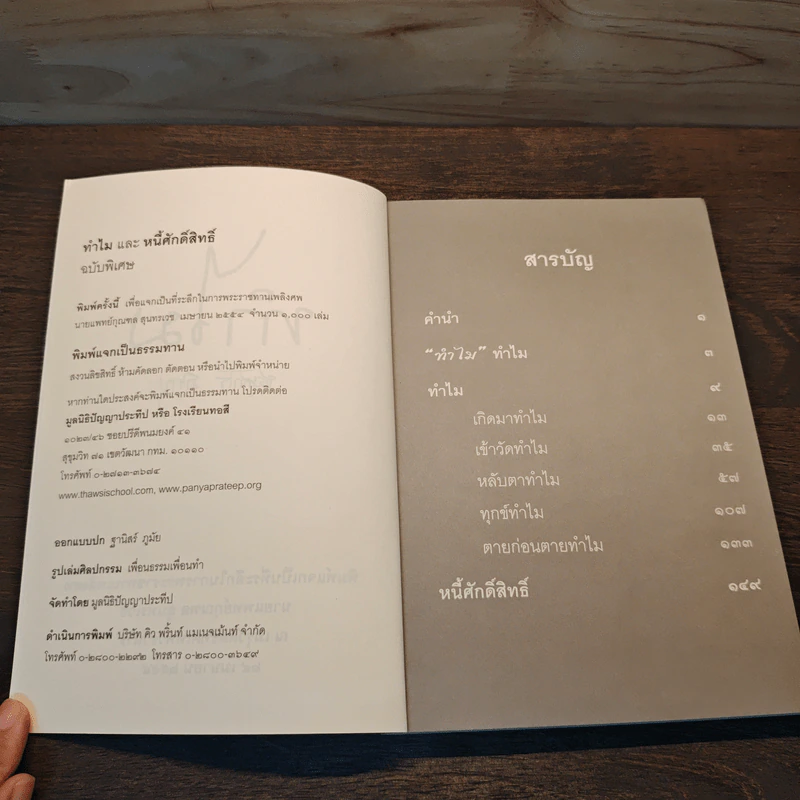 ทำไม และ หนี้ศักดิ์สิทธิ์
ฉบับพิเศษ
พิมพ์ครั้งนี้ เพื่อแจกเป็นที่ระลึกในการพระราชทานเพลิงศพ
นายแพทย์กุณฑล สุนทรเวช เมษายน ๒๕๕๔ จำนวน ๑,๐๐๐ เล่ม
พิมพ์แจกเป็นธรรมทาน
สงวนลิขสิทธิ์ ห้ามคัดลอก ตัดตอน หรือนำไปพิมพ์จำหน่าย
หากท่านใดประสงค์จะพิมพ์แจกเป็นธรรมทาน โปรดติดต่อ
มูลนิธิปัญญาประทีป หรือ โรงเรียนทอสี
๑๐๒๓/๔๖ ซอยปรีดีพนมยงค์ ๔๑
สุขุมวิท ๗๑ เขตวัฒนา กทม. ๑๐๑๑๐
โทรศัพท์ ๐-๒๗๑๓-๓๖๗๔
www.thawsischool.com, www.panyaprateep.org
ออกแบบปก ฐานิสร์ ภูมัย
รูปเล่มศิลปกรรม เพื่อนธรรมเพื่อนทำ
จัดทำโดย มูลนิธิปัญญาประทีป
ดำเนินการพิมพ์ บริษัท คิว พริ้นท์ แมเนจเม้นท์ จำกัด
โทรศัพท์ ๐-๒๘๐๐-๒๒๙๒ โทรสาร ๐-๒๘๐๐-๓๖๔๙
สารบัญ
คำนำ ๑
“ทำไม” ทำไม ๓
ทำไม ๙
เกิดมาทำไม ๑๓
เข้าวัดทำไม ๓๕
หลับตาทำไม ๕๗
ทุกข์ทำไม ๑๐๗
ตายก่อนตายทำไม ๑๓๓
หนี้ศักดิ์สิทธิ์ ๑๔๙